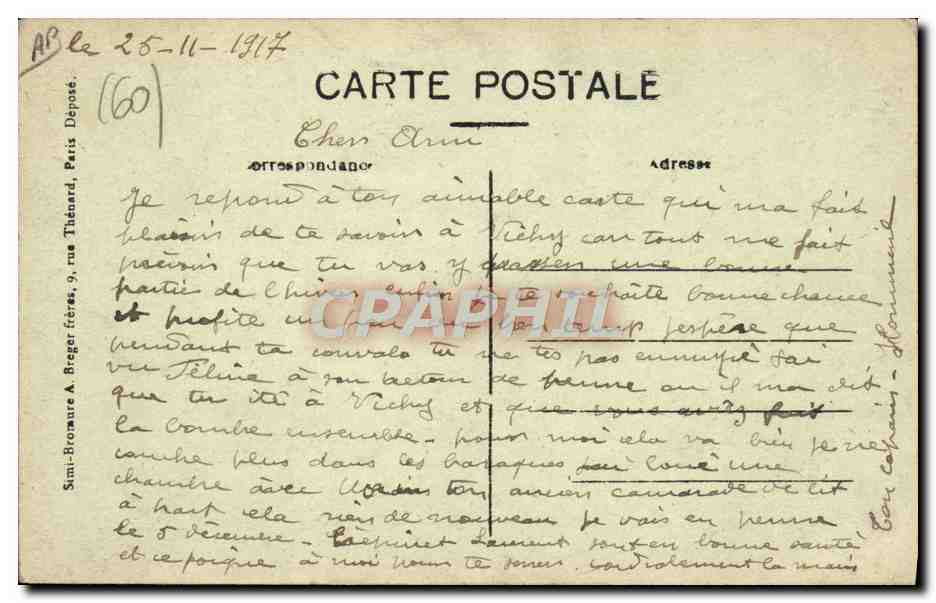 AB le 25-11-1917
(60)
CARTE POSTALE
Cher Ami
Correspondance
Adresse
Je repond à ton aimable carte qui ma fait
plaisir de te savoir à Vichy car tout me fait
prévoir que tu vas y passer une bonne
partie de l'hiver enfin je te souhaite bonne chance
et profite un peu du bon temps j'espère que
pendant ta convalo tu ne tes pas ennuyé jai
vu Féline à son retour de perme ou il ma dit
que tu été à Vichy et que vous aviez fait
la bombe ensemble - pour moi cela va bien je ne
couche plus dans les baraques jai loué une
chambre avec ton ancien camarade de lit
à part cela rien de nouveau je vais en perme
le 5 décembre - Laurent sont en bonne santé
et se joigne à moi pour te serrer cordialement la main
Ton copain -
Simi-Bromure A. Breger frères, 9, rue Thénard, Paris Déposé.
CPAPHIL